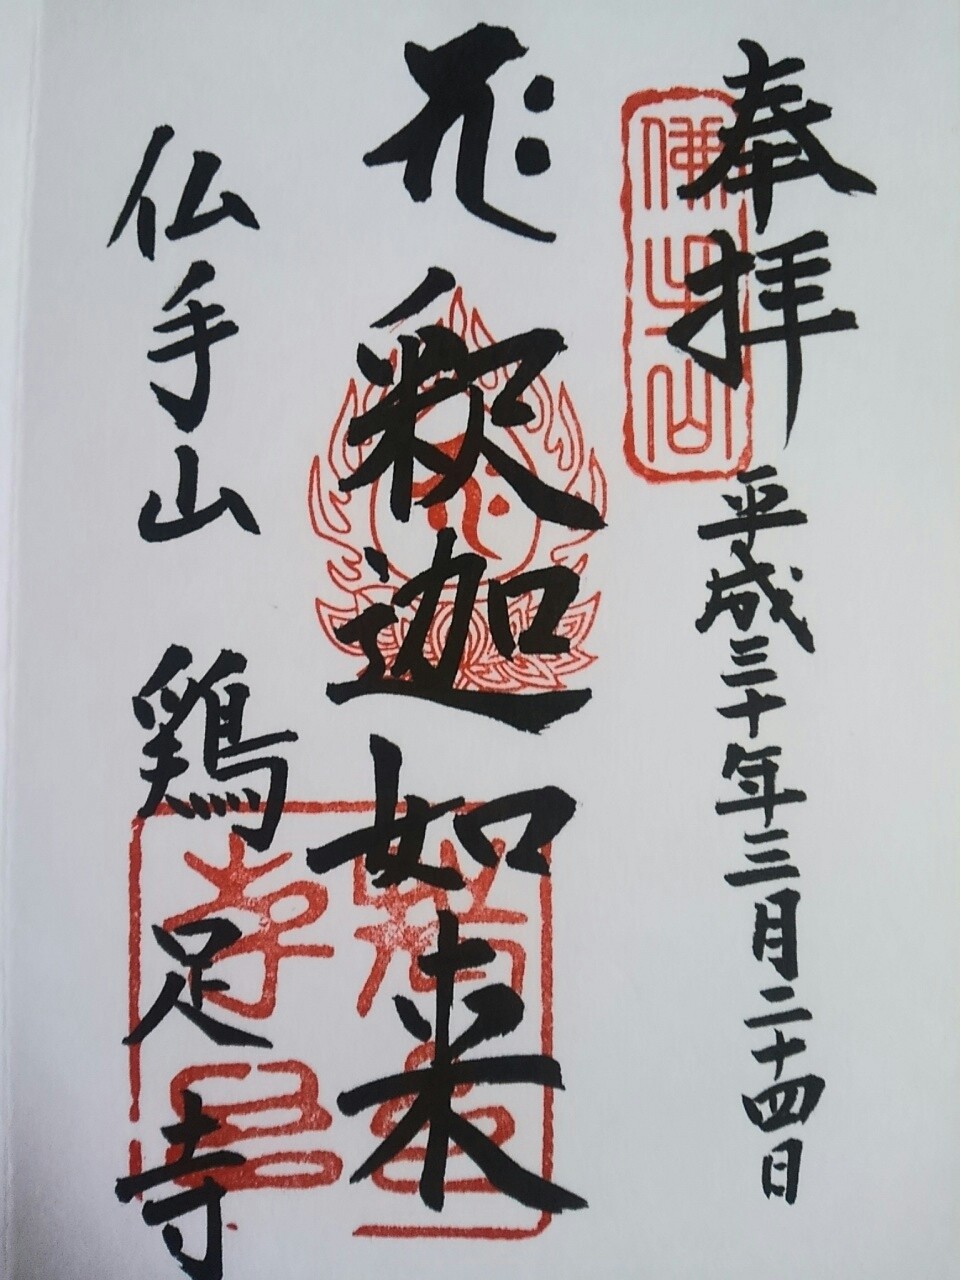 奉拝
平成三十年三月二十四日
釈迦如来
仏手山 鶏足寺
佛手山